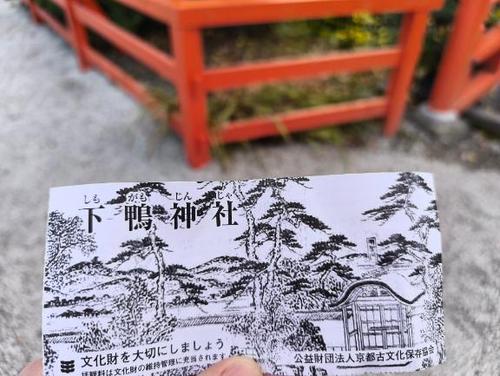 しも がも じん じゃ
下鴨神社
文化財を大切にしましょう
拝観料は文化財の維持管理に充当されます
公益財団法人京都古文化保存協会